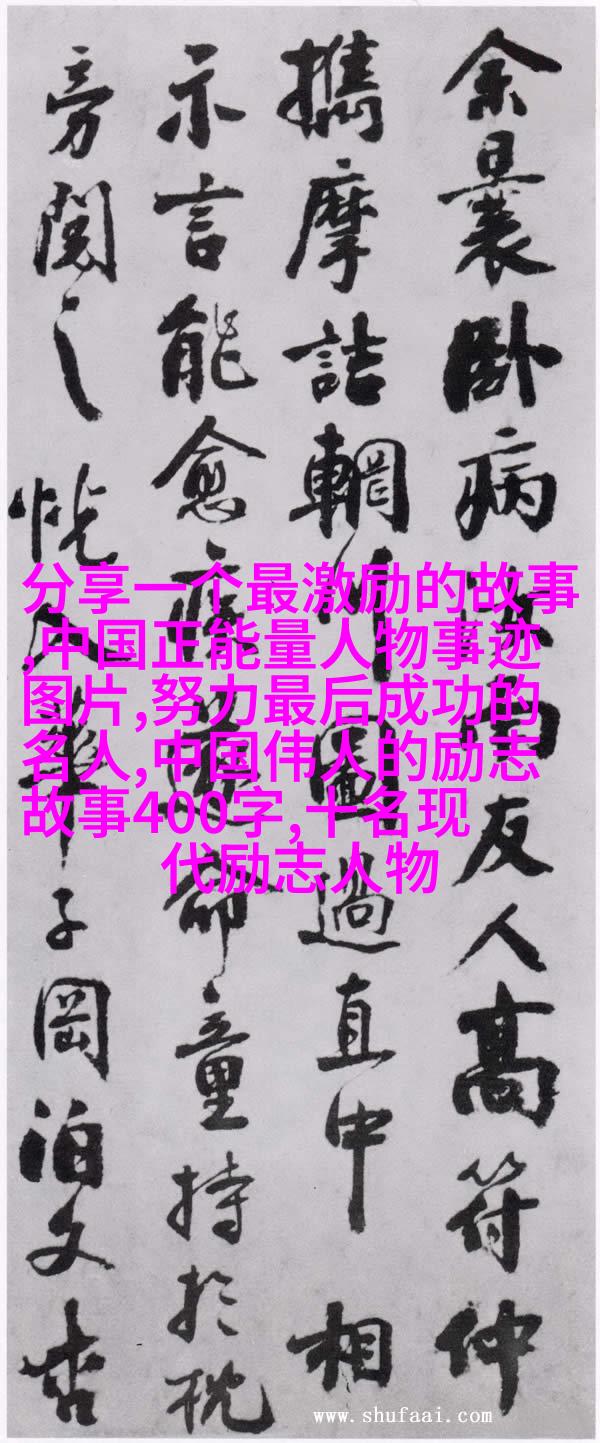 余曩卧病汝南友人高符仲
攜摩詰輞川圖過直中相
示言能愈疾遂命童持於枕
旁閱之恍入華子岡泊文杏
分享一个最激励的故事
,中国正能量人物事迹
图片,努力最后成功的
名人,中国伟人的励志
故事400字,十名现
代励志人物
www.shufaai.com